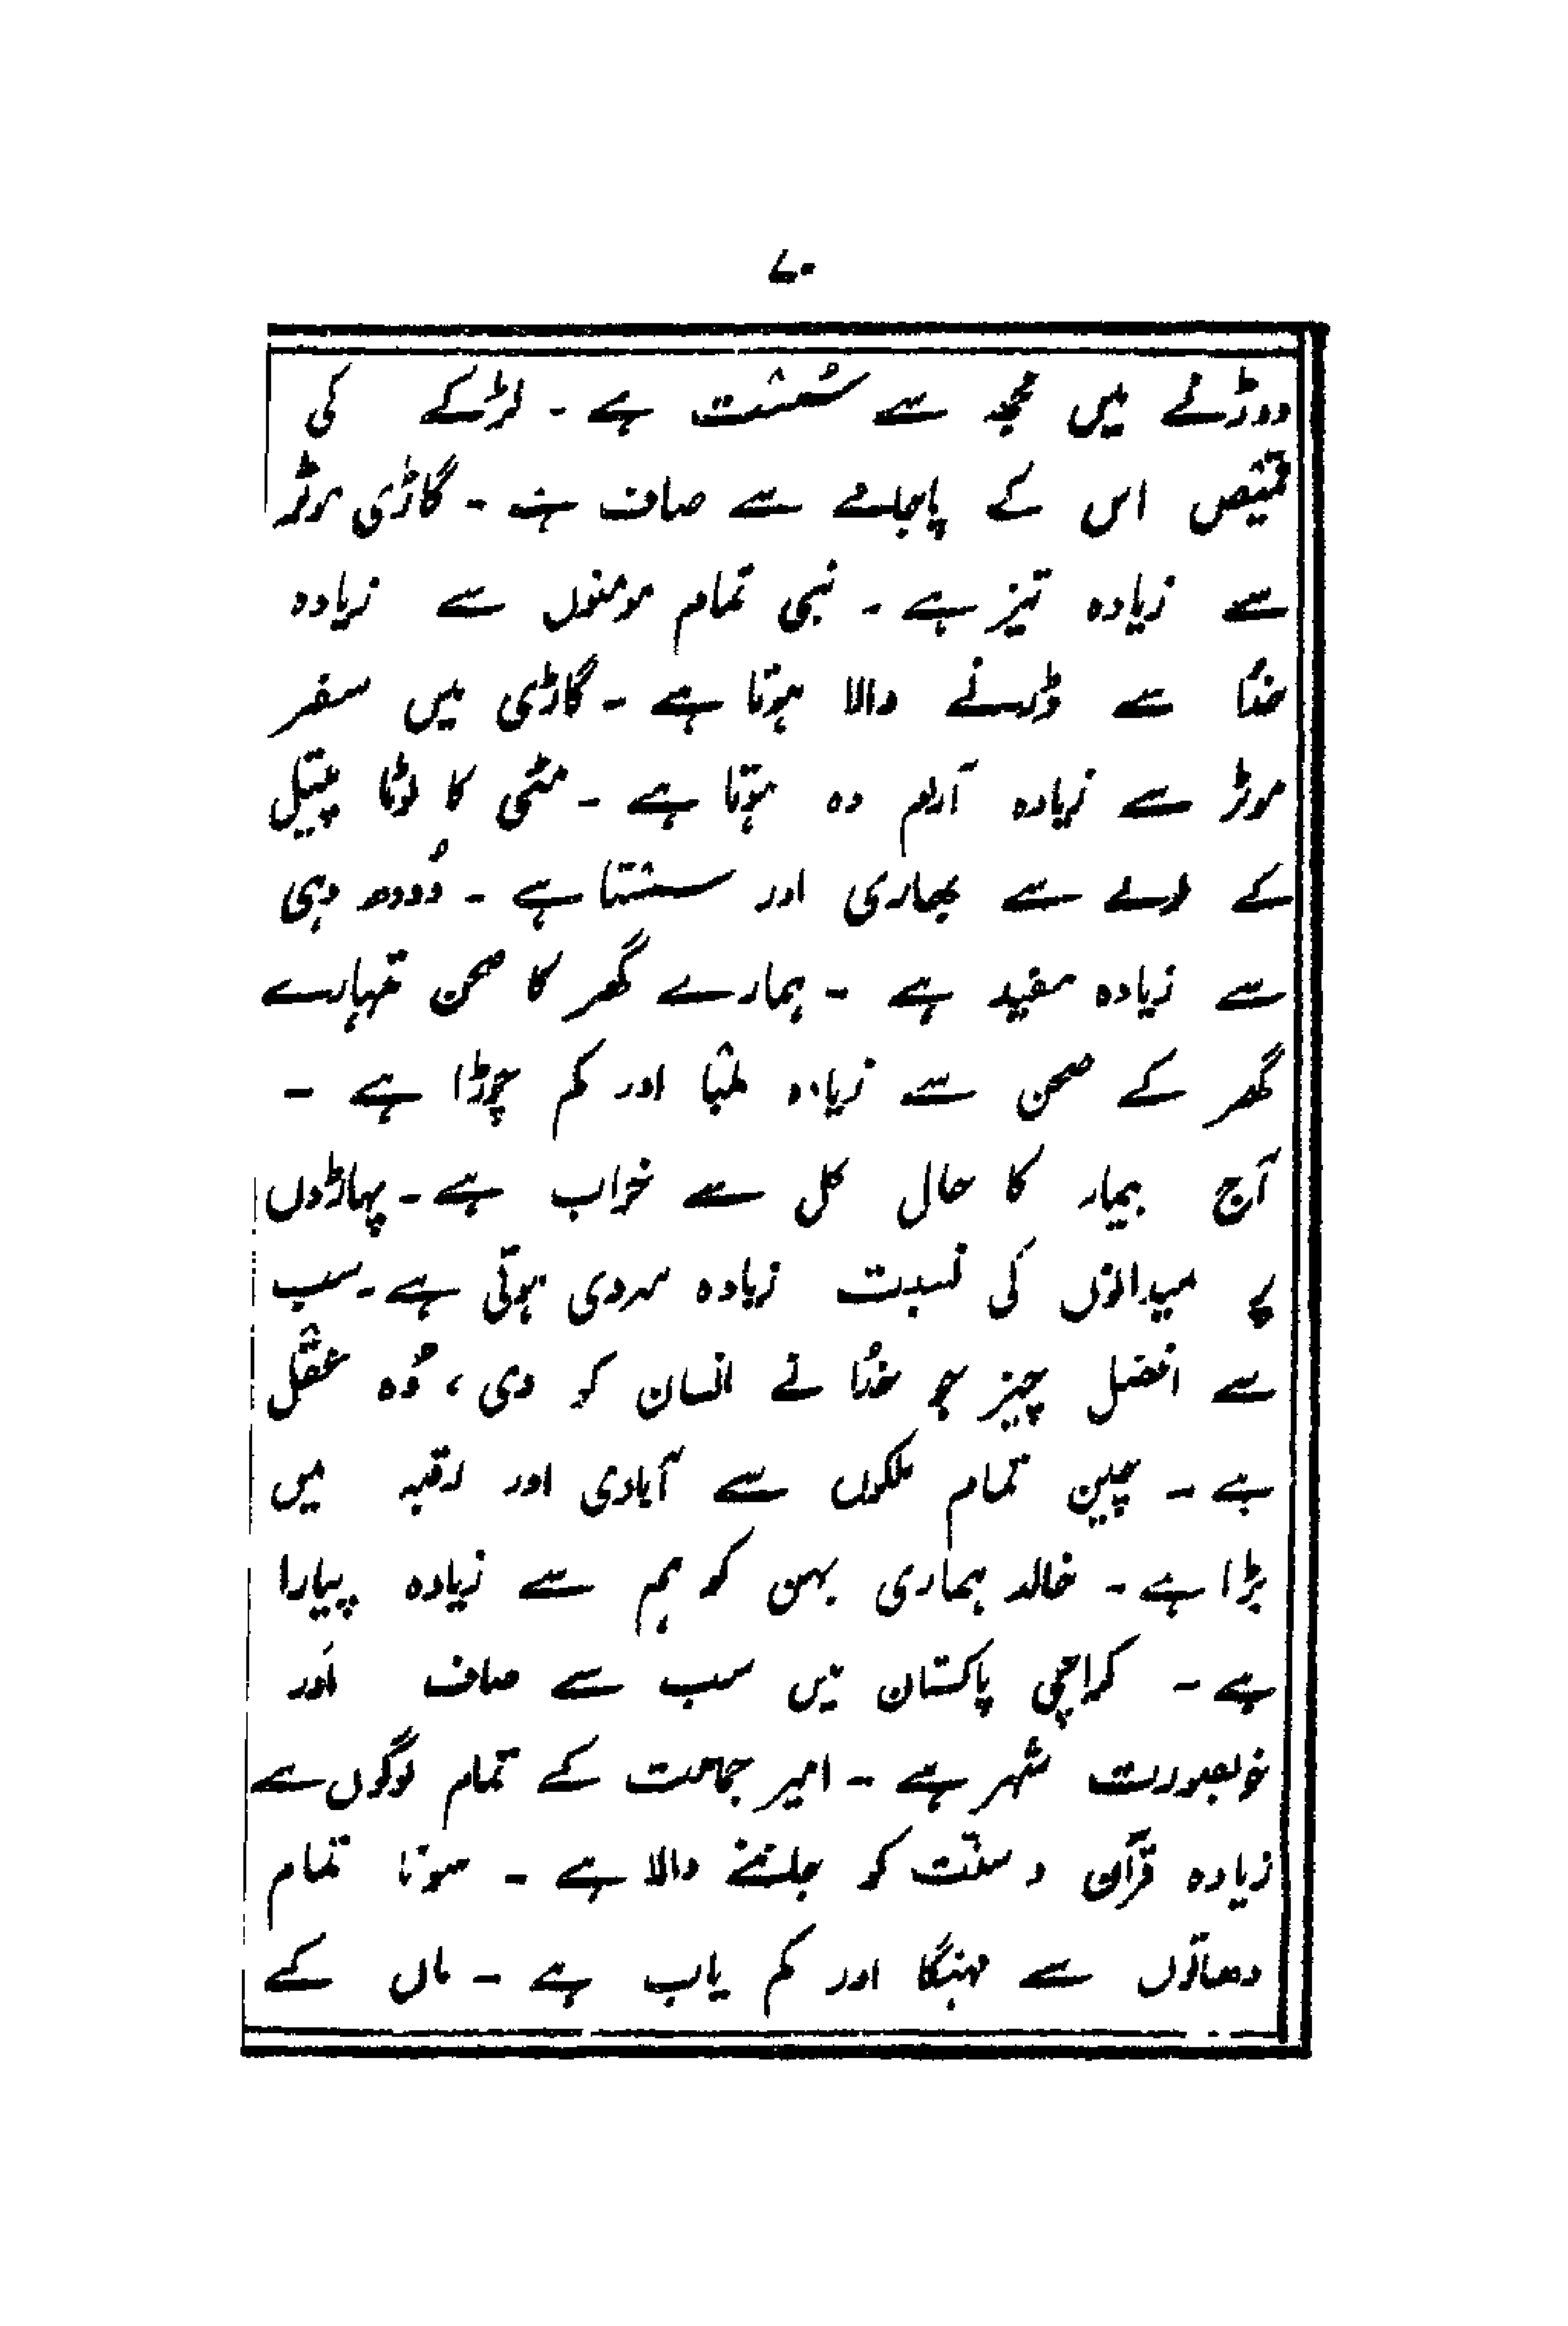 ۷۰
دوڑنے میں مجھ سے سُسْت ہے ۔ لڑکے کی
قمیص اس کے پاجامے سے صاف ہے ۔ گاڑی موٹر
سے زیادہ تیز ہے ۔ نبی تمام مومنوں سے زیادہ
خدُا سے ڈرنے والا ہوتا ہے ۔ گاڑی میں سفر
موٹر سے زیادہ آرام دہ ہوتا ہے ۔ مٹی کا لوٹا پیتل
کے لوٹے سے بھاری اور سسْتا ہے ۔ دُودھ دہی
سے زیادہ مفید ہے ۔ ہمارے گھر کا صحن تمہارے
گھر کے صحن سے زیادہ لمْبا اور کم چوڑا ہے ۔
آج بیمار کا حال کل سے خراب ہے ۔ پہاڑوں
پر میدانوں کی نسبت زیادہ سردی ہوتی ہے ۔ سب
سے افضل چیز جو خدُا نے انسان کو دی ، وُہ عقْل
ہے ۔ چین تمام ملکوں سے آبادی اور رقبہ میں
بڑا ہے ۔ خالد ہماری بہن کو ہم سے زیادہ پیارا
ہے ۔ کراچی پاکستان میں سب سے صاف اَور
خوبصورت شہر ہے ۔ امیر جماعت کے تمام لوگوں سے
زیادہ قرآن و سنّت کو جاننے والا ہے ۔ سونا تمام
دھاتوں سے مہنگا اور کم یاب ہے ۔ ماں کے